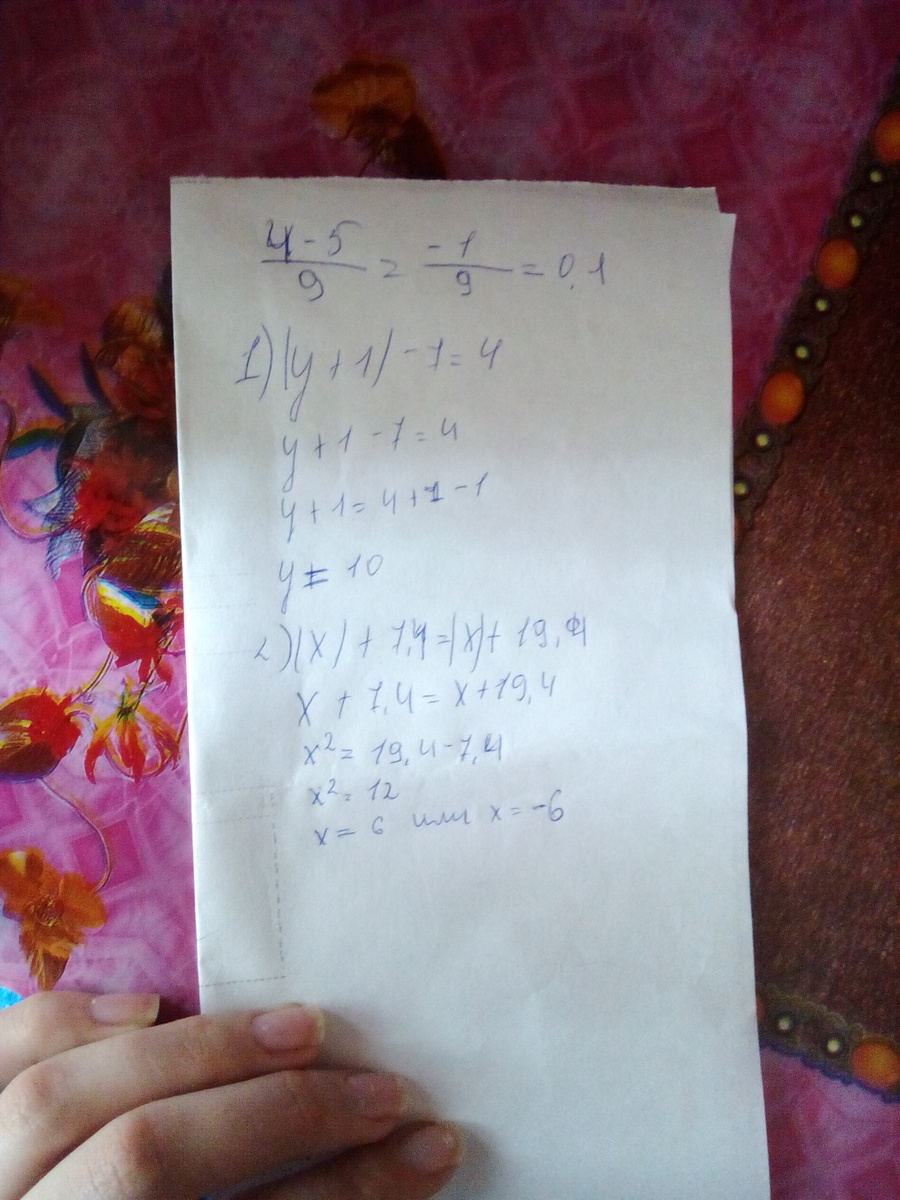 4-5/9 = -1/9 = 0,1
1) |y+1|-7=4
y+1-7=4
y+1=4+7-1
y=10
2) |x|+7,4=|x|+19,4
x+7,4=x+19,4
x²=19,4-7,4
x²=12
x=6 или x=-6